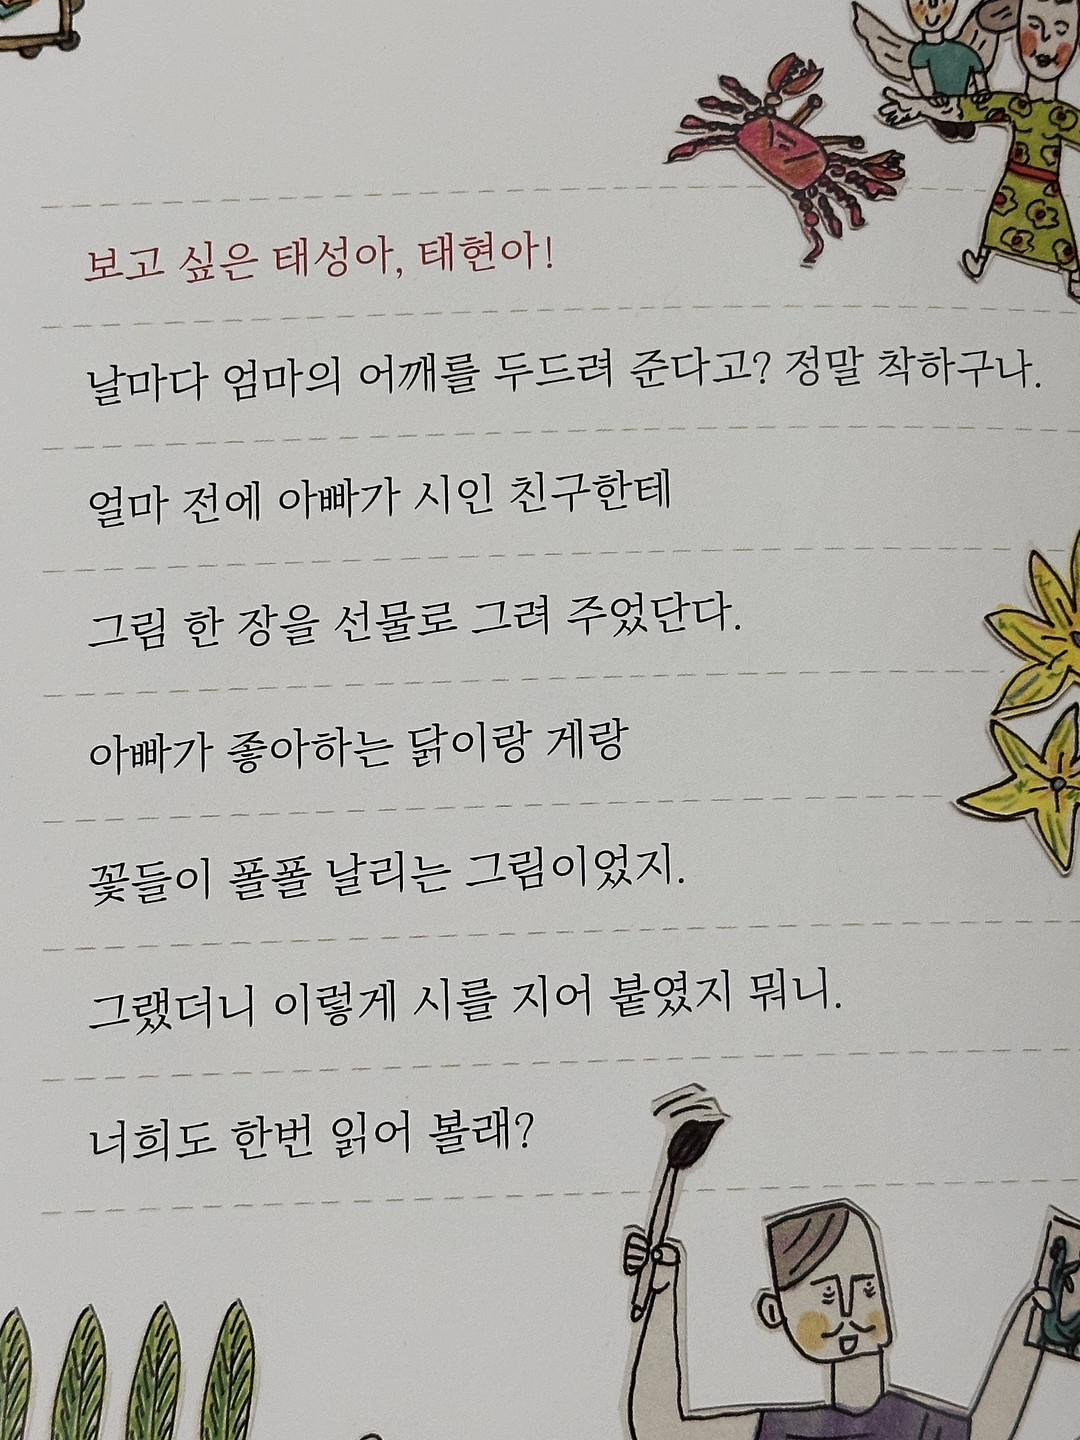 보고 싶은 태성아, 태현아!
날마다 엄마의 어깨를 두드려 준다고? 정말 착하구나.
얼마 전에 아빠가 시인 친구한테
그림 한 장을 선물로 그려 주었단다.
아빠가 좋아하는 닭이랑 게랑
꽃들이 폴폴 날리는 그림이었지.
그랬더니 이렇게 시를 지어 붙였지 뭐니.
너희도 한번 읽어 볼래?